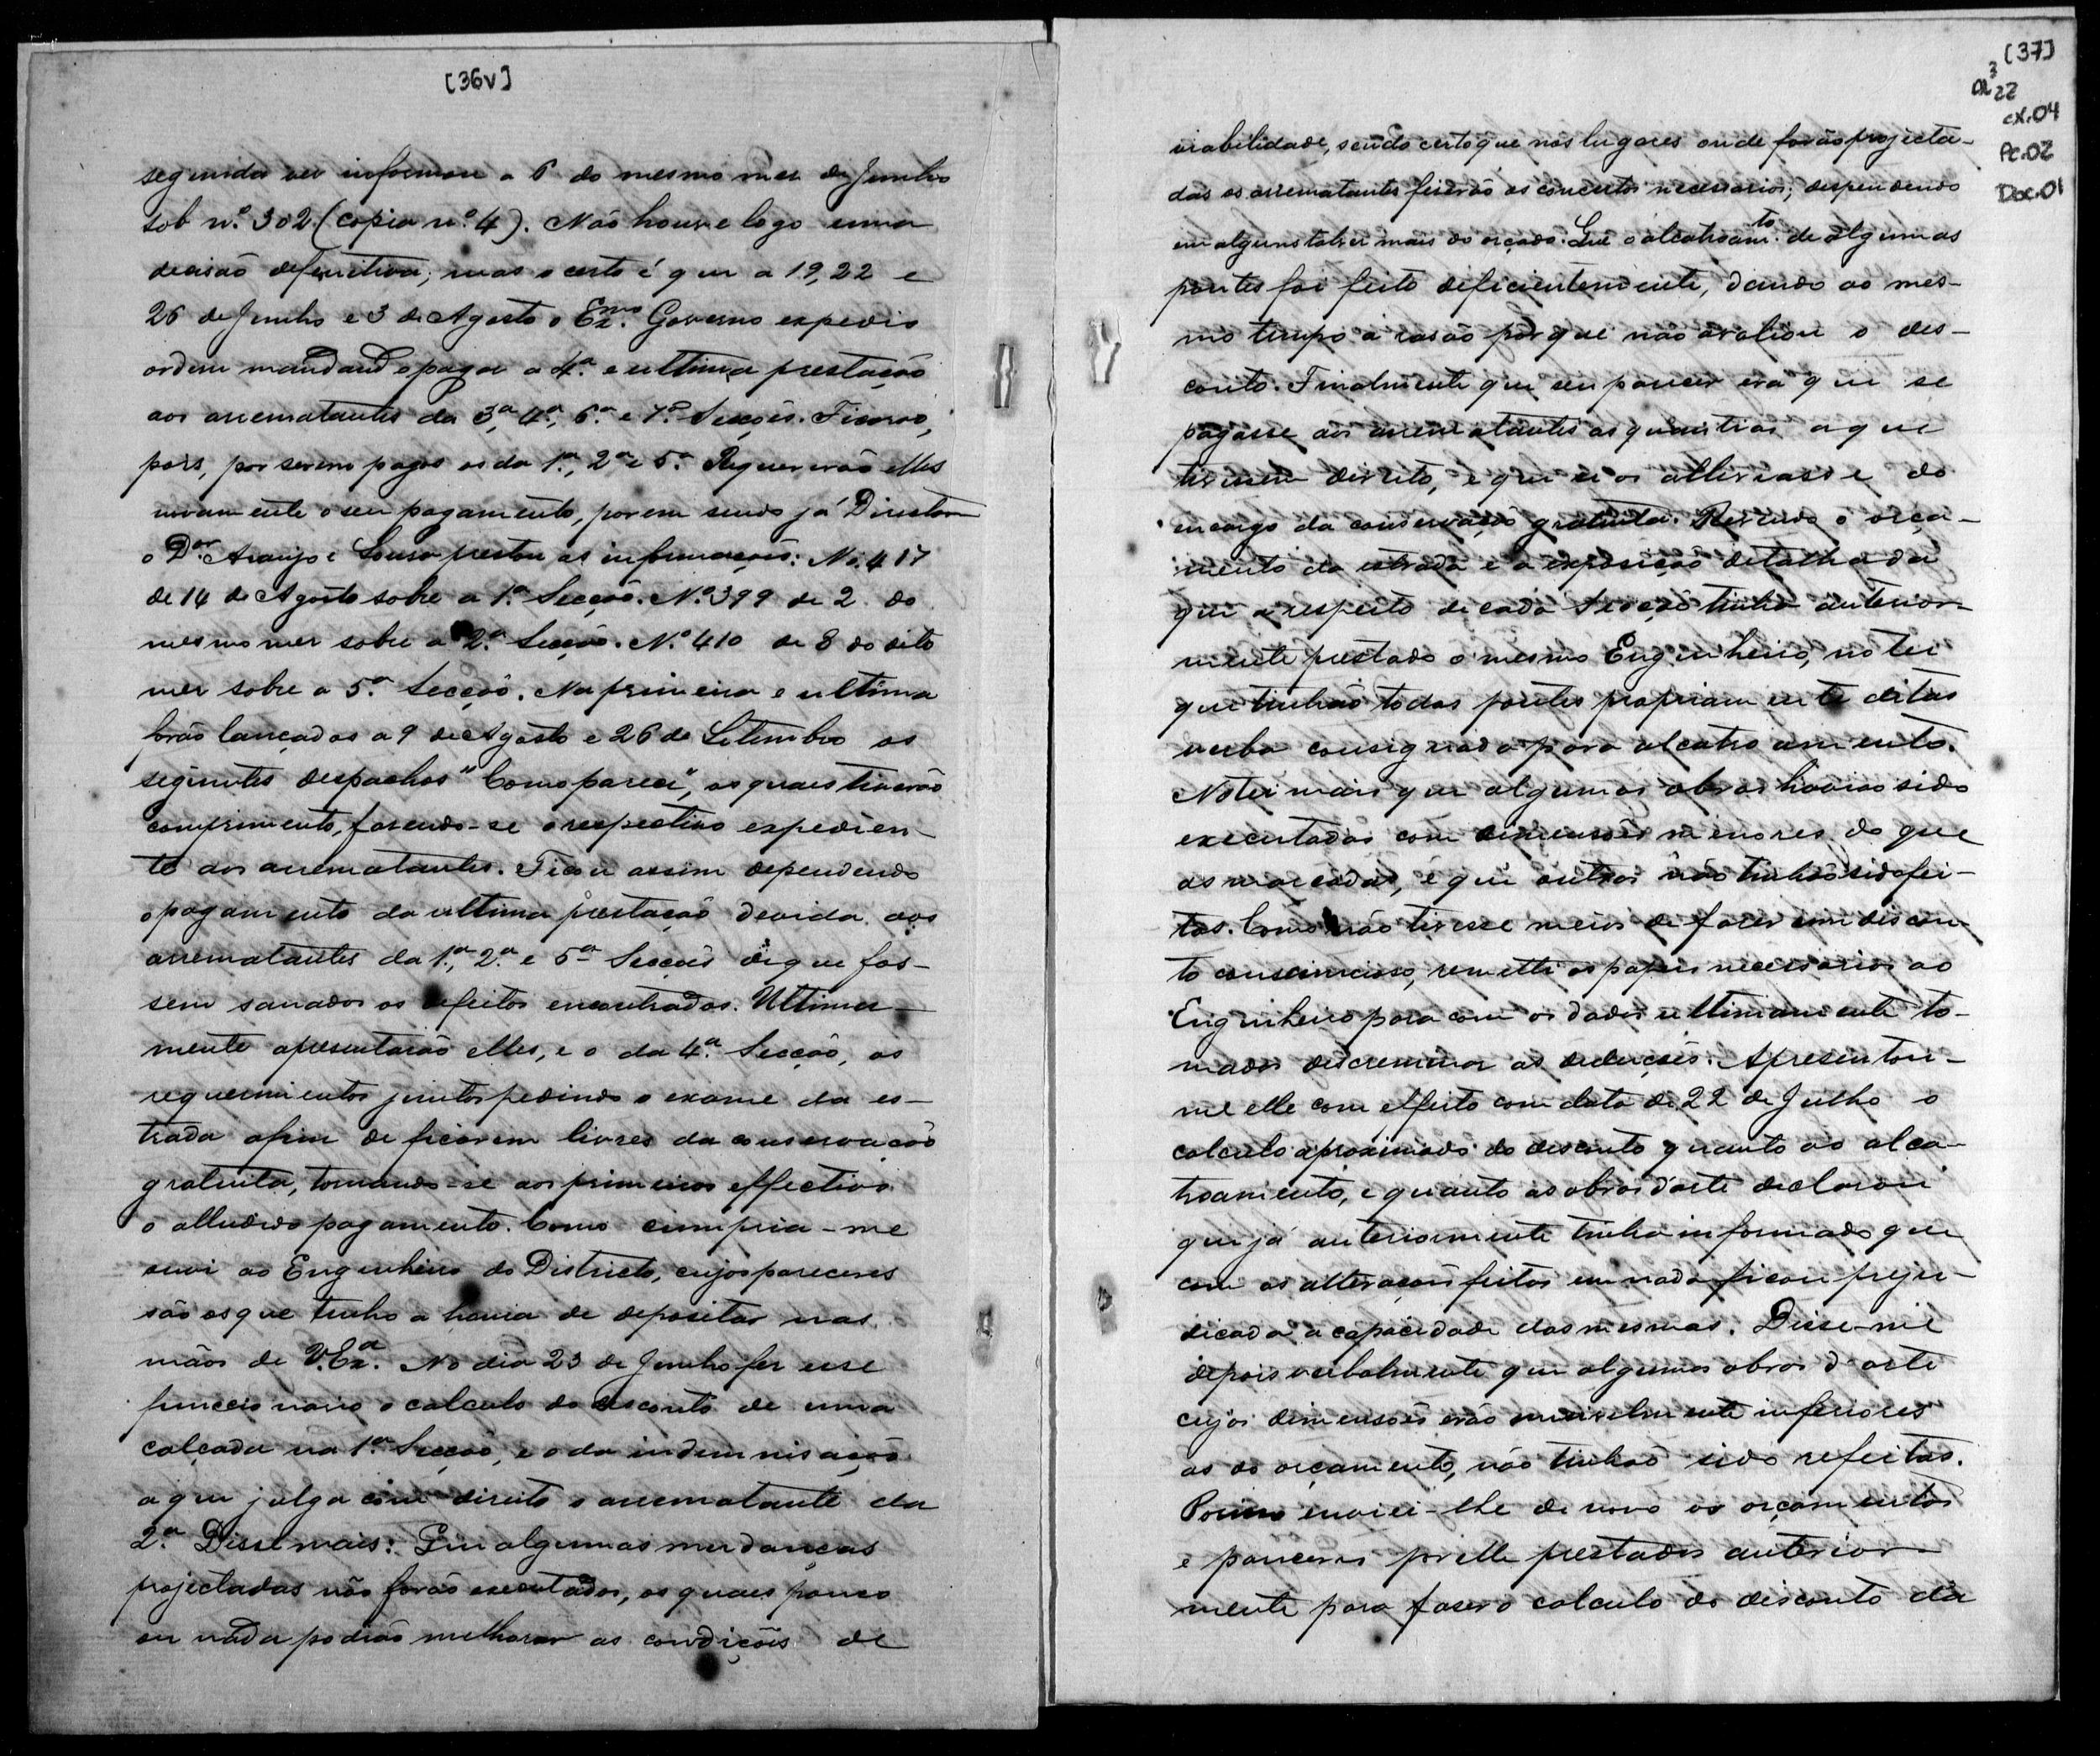 [36v]
seguida vez informou a 6 do mesmo mez de Junho
sob nº 302 (copia nº 4). Não houve logo uma
decisão definitiva; mas o certo é que a 19, 22 e
26 de Junho e 3 de Agosto o Exmo. Governo expedio
ordem mandando pagar a 4ª e ultima prestação
aos arrematantes da 3ª, 4ª, 6ª e 7ª Secções. Ficarão,
pois, por serem pagos os da 1ª, 2ª e 5ª. Requererão elles
novamente o seu pagamento, porem sendo já Director
o Dor. Araujo e Souza prestou as informações: Nº 417
de 14 de Agosto sobre a 1ª Secção. Nº 399 de 2 do
mesmo mez sobre a 2ª Secção. Nº 410 de 8 do dito
mez sobre a 5ª Secção. Na primeira e ultima
forão lançados a 9 de Agosto e 26 de Setembro os
seguintes despachos "Como parece", os quaes tiverão
comprimento, fasendo-se o respectivo expedien-
te aos arrematantes. Ficou assim dependendo
o pagamento da ultima prestação devida aos
arrematantes da 1ª, 2ª e 5ª Secções de que fos-
sem sanados os defeitos encontrados. Ultima-
mente apresentarão elles, e o da 4ª Secção, os
requerimentos juntos pedindo o exame da es-
trada afim de ficarem livres da conservação
gratuita, tornando-se aos primeiros effectivo
o alludido pagamento. Como cumpria-me
ouvi ao Engenheiro do Districto, cujos pareceres
são os que tenho a honra de depositar nas
mãos de V.Exª. No dia 23 de Junho fez esse
funccionario o calculo do desconto de uma
calçada na 1ª Secção, e o da indemnisação
a que julga com direito o arrematante da
2ª. Disse mais: Que algumas mudanças
projectadas não forão executadas, as quaes pouco
ou nada podião melhorar as condições de
[37]
3
22
cx.04
Pc.02
Doc.01
viabilidade, sendo certo que nos lugares onde forão projecta-
das os arrematantes fiserão os concertos necessarios; despendendo
em alguns talvez mais do orçado. Que o alcatroamto. de algumas
pontes foi feito deficientemente, dando ao mes-
mo tempo a rasão porque não avaliou o des-
conto. Finalmente que seu parecer era que se
pagasse aos arrematantes as quantias a que
tivessem direito, e que se os alliviasse do
encargo da conservação gratuita. Revendo o orça-
mento da estrada e a exposição detalhada
que a respeito de cada Secção tinha anterior-
mente prestado o mesmo Engenheiro, notei
que tinhão todas pontes propriamente ditas
verba consignada para alcatroamento.
Notei mais que algumas obras havião sido
executadas com dimensões menores do que
as marcadas, e que outras não tinhão sido fei-
tas. Como não tivesse meios de fazer um descon-
to consciencioso, remetti os papeis necessarios ao
Engenheiro para com os dados ultimamente to-
mados descreminar as deducções. Apresentou-
me elle com effeito com data de 22 de Julho o
calculo aproximado do desconto quanto ao alca-
troamento, e quanto as obras d'arte declarou
que já anteriormente tinha informado que
com as alterações feitas em nada ficou preju-
dicada a capacidade das mesmas. Disse-me
depois verbalmente que algumas obras d'arte
cujas dimensões erão sensivelmente inferiores
as do orçamento, não tinhão sido refeitas.
Por isso enviei-lhe de novo os orçamentos
e pareceres por elle prestados anterior-
mente para faser o calculo do desconto da